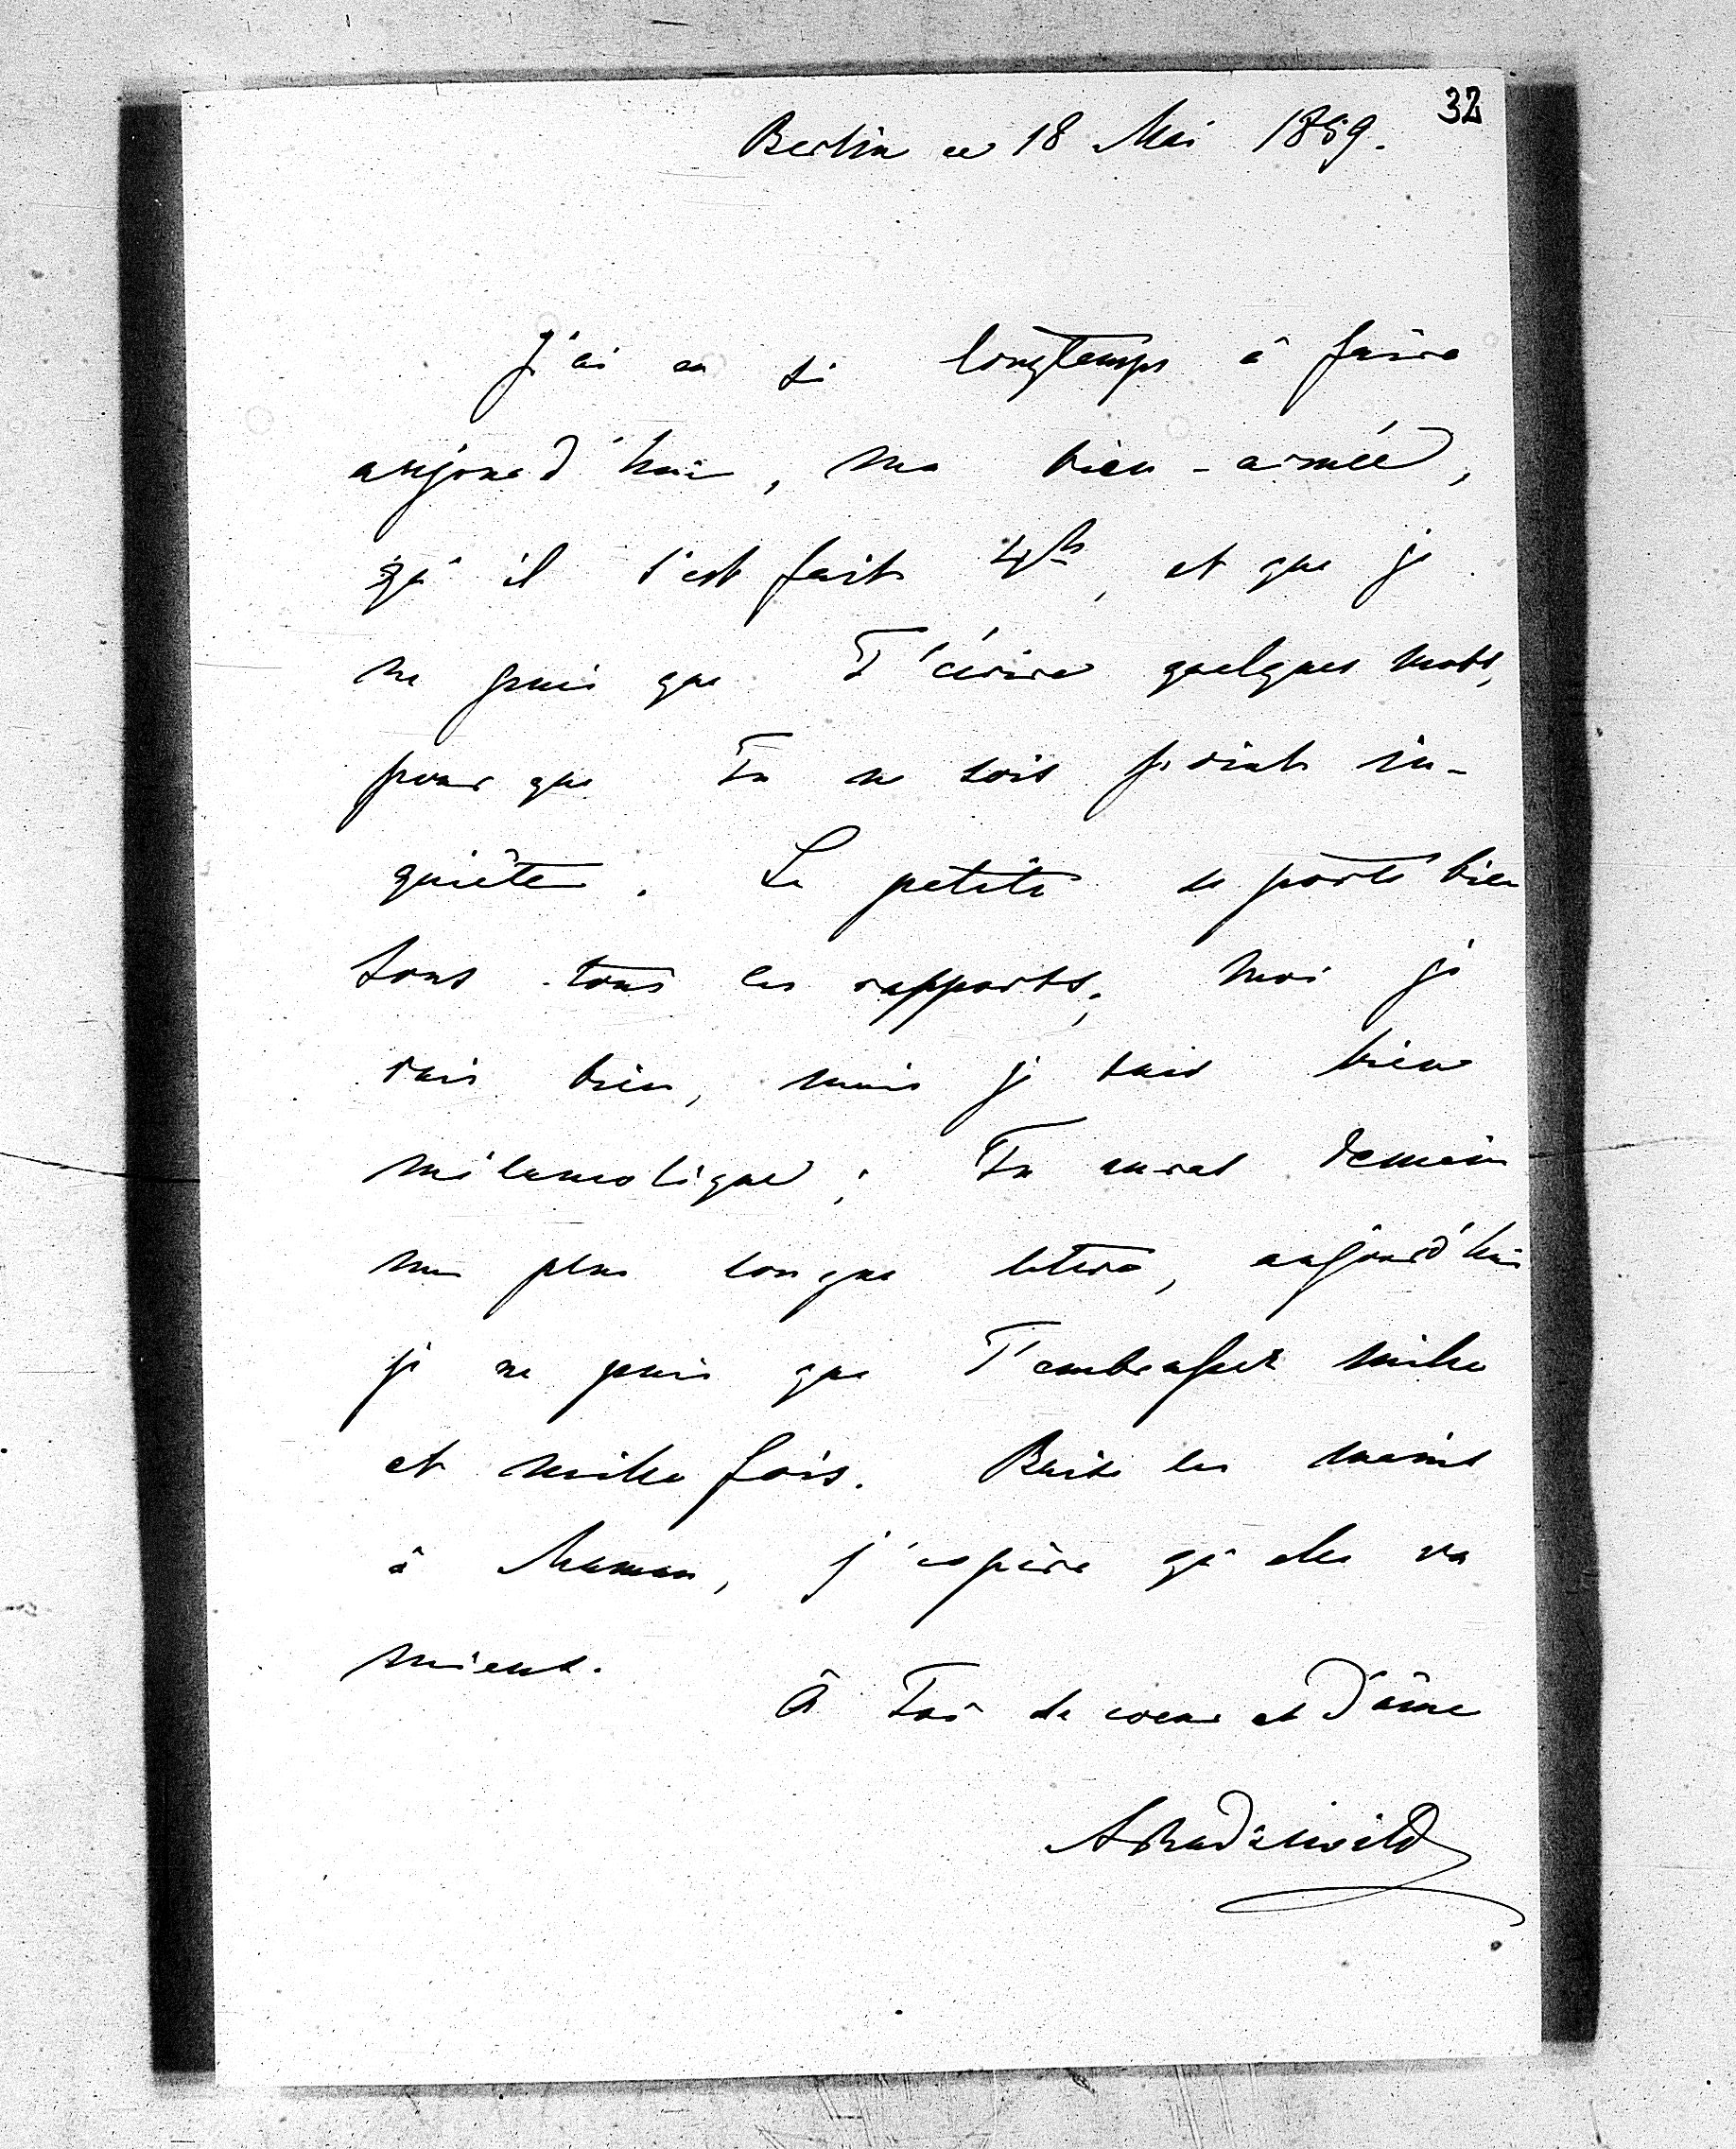 32
Berlin ce 18 Mai 1859.
J'ai eu si longtemps à faire
aujourd'hui, ma bien-aimée,
qu'il s'est fait 4h, et que je
ne puis que T'écrire quelques mots,
pour que Tu ne sois point in-
quiète. La petite se porte bien
sous tous les rapports; moi je
vais bien, mais je suis bien
mélancolique; Tu auras demain
une plus longue lettre, aujourd'hui
je ne puis que T'embrasser mille
et mille fois. Baise les mains
à Maman, j'espère qu'elle va
mieux.
À Toi de coeur et d'âme
ARadziwill